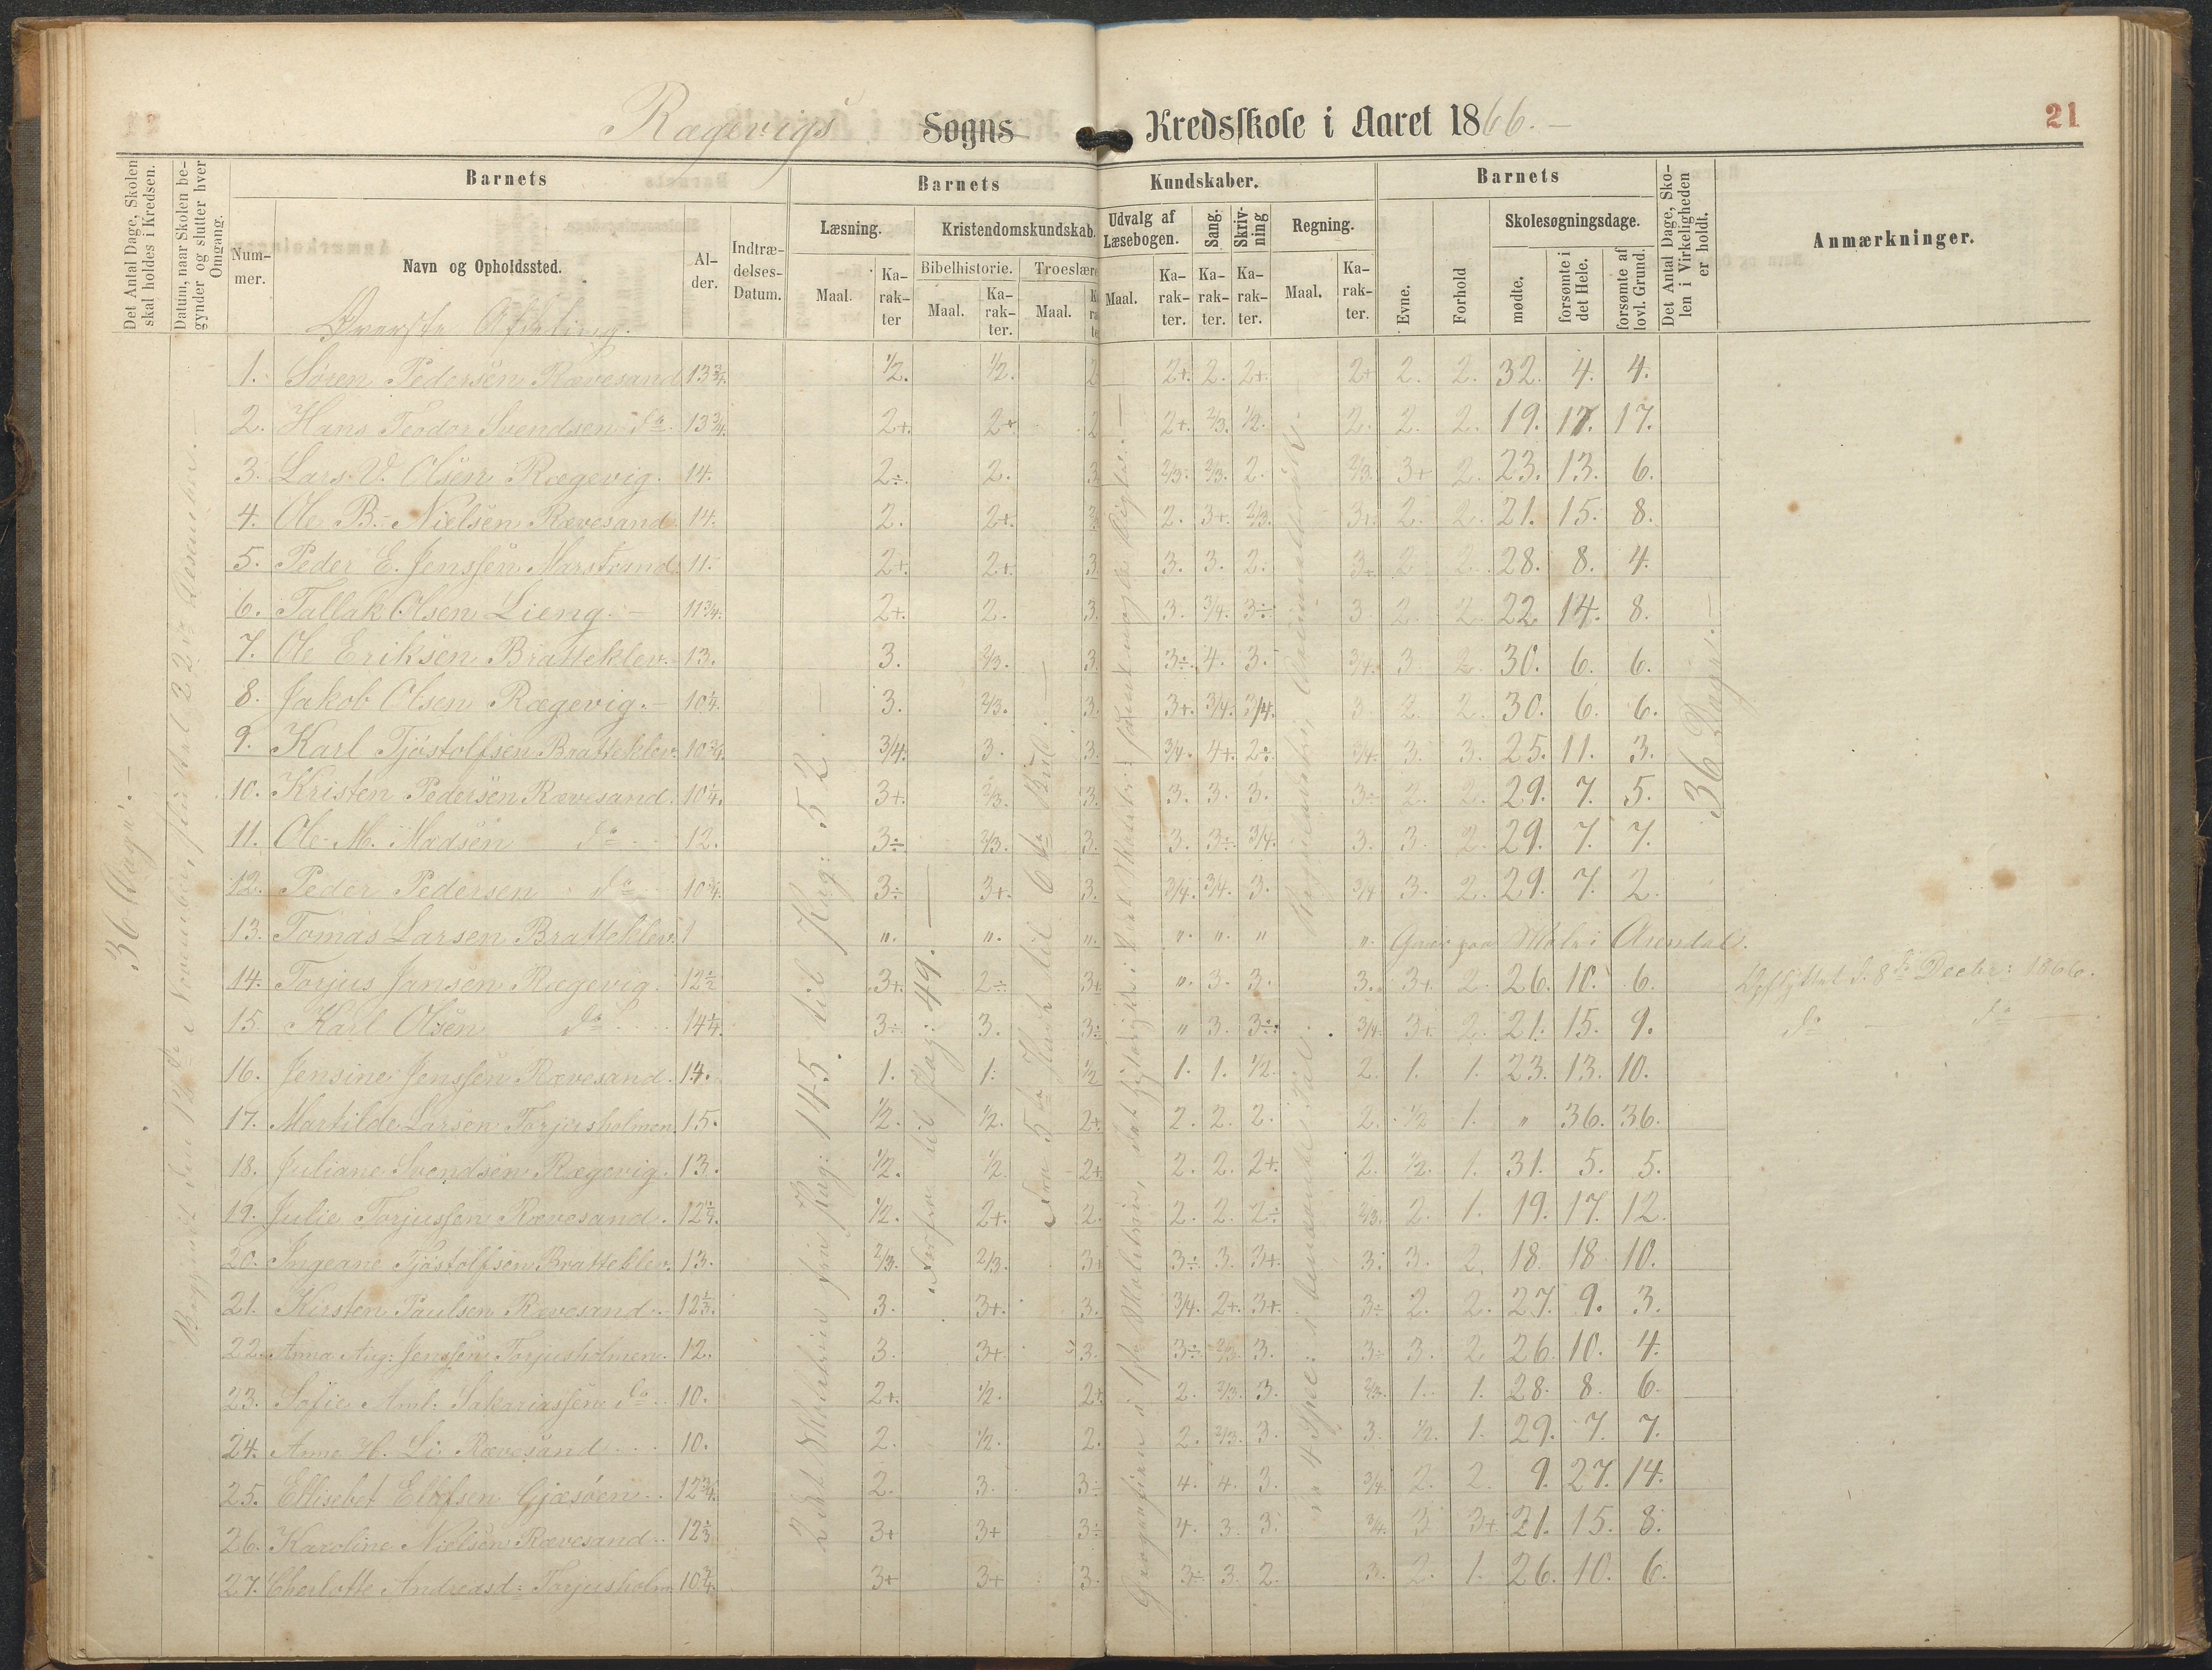 Rægevigs Sogns Kredsskole i Aaret 1866.
21
Det Antal Dage, Skolen skal holdes i Kredsen.
Datum, naar Skolen begynder og slutter hver Omgang.
Barnets
Barnets
Kundskaber.
Barnets
Det Antal Dage, Skolen i Virkeligheden er holdt.
Anmærkninger.
Nummer.
Navn og Opholdssted.
Alder.
Indtrædelses-Datum.
Læsning.
Kristendomskundskab.
Udvalg af Læsebogen.
Sang.
Skrivning
Regning.
Evne.
Forhold
Skolesøgningsdage.
Bibelhistorie.
Troeslære
Maal.
Karakter
Maal.
Karakter.
Maal.
Maal.
Karakter.
Karakter.
Karakter.
Maal.
Karakter.
mødte.
forsømte i det Hele.
forsømte af lovl. Grund.
Øverste Afdeling.
36 Dage. —
36 Dage. —
1. Søren Pedersen Rævesand 13¾. 1/2. 1/2. 2 2+. 2. 2+. 2+ 2. 2. 32. 4. 4.
2. Hans Teodor Svendsen do. 13¾. 2+. 2+. 2 2+. 2/3. 1/2. 2. 2. 2. 19. 17. 17.
3. Lars V. Olsen Rægevig. 14. 2÷. 2. 3 2/3. 2/3. 2. 2/3. 3+ 2. 23. 13. 6.
4. Ole B. Nielsen Rævesand 14. 2. 2+. 2. 3+. 2/3. 3+. 2. 2. 21. 15. 8.
5. Peder E. Jenssen Marstrand. 11. 2+. 2+. 3 3. 3. 2. 3+ 2. 2. 28. 8. 4.
6. Tallak Olsen Lieng. — 11¾. 2+. 2. 3. 3. 3/4. 3÷ 3. 2. 2. 22. 14. 8.
7. Ole Eriksen Bratteklev. 13. 3. 2/3. 3. 3÷. 4. 3. 3/4. 3. 2. 30. 6. 6.
8. Jakob Olsen Rægevig. — 10¼. 3. 2/3. 3. 3+. 3/4. 3/4. 3. 2. 2. 30. 6. 6.
9. Karl Tjöstolfsen Bratteklev. 10¾. 3/4. 3. 3. 3/4. 4+. 2÷ 3/4. 3. 3. 25. 11. 3.
10. Kristen Pedersen Rævesand. 10¼. 3+. 2/3. 3. 3. 3. 3. 3÷ 2. 2. 29. 7. 5.
11. Ole M. Madsen do 12. 3÷ 2/3. 3. 3. 3÷. 3/4. 3. 3. 2. 29. 7. 7.
12. Peder Pedersen do 10¾. 3÷ 3+. 3. 3/4. 3/4. 3. 3/4 3. 2. 29. 7. 2.
13. Tomas Larsen Bratteklev. " " " " " " " Gaar paa Skole i Arendal.
14. Torjus Jansen Rægevig. 12½ 3+. 2÷ 3+ " 3. 3. 3. 3+. 2. 26. 10. 6. Udflyttet d. 8de Decbr: 1866.
15. Karl Olsen do 14¼. 3÷ 3. 3÷ " 3. 3÷. 3/4. 3+. 2. 21. 15. 9. do — do —
16. Jensine Jenssen Rævesand. 14. 1. 1. 1/2 1. 1. 1/2. 2. 1. 1. 23. 13. 10.
17. Martilde Larsen Torjusholmen. 15. 1/2. 1/2. 2+. 2. 2. 2. 2. 1/2 1. " 36. 36.
18. Juliane Svendsen Rægevig. 13. 1/2. 1/2. 2+. 2. 2. 2+. 2. 1/2. 1. 31. 5. 5.
19. Julie Torjussen Rævesand. 12¼. 1/2. 2+. 2. 2. 2. 2÷ 2/3. 2. 1. 19. 17. 12.
20. Ingeane Tjöstolfsen Bratteklev. 13. 2/3. 2/3. 3+ 3÷ 3. 3+. 3. 3. 2. 18. 18. 10.
21. Kirsten Paulsen Rævesand. 12⅓. 3. 3+. 3. 3/4. 2+. 3+. 3÷ 2. 2. 27. 9. 3.
22. Anna Aug: Jenssen Torjusholmen. 12. 3. 3+. 3. 3÷ 2/3. 3. 3÷ 3. 2 26. 10. 4.
23. Sofie Aml: Sakariassen do 10. 2+. 1/2. 2+. 2. 2/3. 3. 2/3. 1. 1. 28. 8. 6.
24. Anne H. Li Rævesand 10. 2. 1/2. 2. 2. 2/3. 3. 3. 1/2. 1. 29. 7. 7.
25. Ellisebet Ellefsen Gjæsöen. 12¾. 2. 3. 3÷ 4. 4. 3. 3/4. 2. 2. 9. 27. 14.
26. Karoline Nielsen Rævesand. 12⅓ 3+ 3+ 3÷ 4. 3. 3. 3/4. 3 3+ 21. 15. 8.
27. Charlotte Andreasd: Torjusholm. 10¾. 3+ 3+ 3. 3÷ 3. 2. 3. 2. 1. 26. 10. 6.
Begyndt den 12te November, sluttet 22de December. —
Pag: 145. til Pag: 52. —
til Pag: 49. —
Fra 5te Part til 6te Bud. —